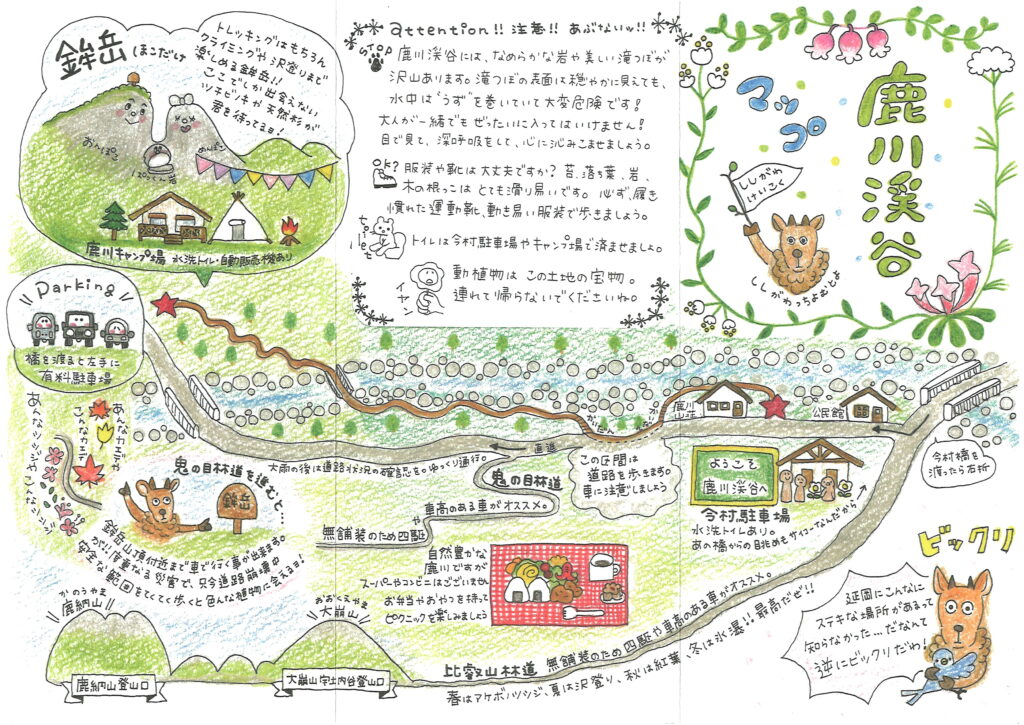 鹿川渓谷
マップ
ししがわ
けいこく
ししがわっちょむとよ
attention!! 注意!! あぶないッ!!
STOP
鹿川渓谷には、なめらかな岩や美しい滝つぼが
沢山あります。滝つぼの表面は穏やかに見えても、
水中は“うず”を巻いていて大変危険です!
大人が一緒でもぜったいに入ってはいけません!
目で見て、深呼吸をして、心に沁みこませましょう。
ok?
服装や靴は大丈夫ですか? 苔、落ち葉、岩、
木の根っこはとても滑り易いです。必ず、履き
慣れた運動靴、動き易い服装で歩きましょう。
toilet
トイレは今村駐車場やキャンプ場で済ませましょ。
イヤン
動植物はこの土地の宝物。
連れて帰らないでくださいね。
鉾岳
ほこだけ
トレッキングはもちろん
クライミングや沢登りまで
楽しめる鉾岳!!
ここでしか出会えない
ツチビノキや天然杉が
君を待ってるヨ!
おんぽこ
めんぽこ
鹿川キャンプ場 水洗トイレ・自動販売機あり
Parking
橋を渡ると左手に
有料駐車場
あんなカエデや
こんなカエデ
あんなツツジやこんなツツジ
大雨の後は道路状況の確認を。ゆっくり通行。
直進
鹿川
山荘
公民館
今村橋を
渡ったら右折
この区間は
道路を歩きます。
車に注意しましょう
ようこそ
鹿川渓谷へ
今村駐車場
水洗トイレあり。
あの橋からの眺めもサイコーなんだから
鬼の目林道を進むと…
鉾岳
鉾岳山頂付近まで車で行く事が出来ます。
が!!度重なる災害で、只今道路崩壊中
安全な範囲をてくてく歩くと色んな植物に会えるヨ!
鬼の目林道
車高のある車がオススメ。
無舗装のため四駆や
自然豊かな
鹿川ですが
スーパーやコンビニはございません
お弁当やおやつを持って
ピクニックを楽しみましょう
かのうやま
鹿納山
鹿納山登山口
おおくえやま
大崩山
大崩山宇土内谷登山口
比叡山林道 無舗装のため四駆や車高のある車がオススメ。
春はアケボノツツジ、夏は沢登り、秋は紅葉、冬は氷瀑!!最高だぜ!!
ビックリ
延岡にこんなに
ステキな場所があって
知らなかった…だなんて
逆にビックリだわ!